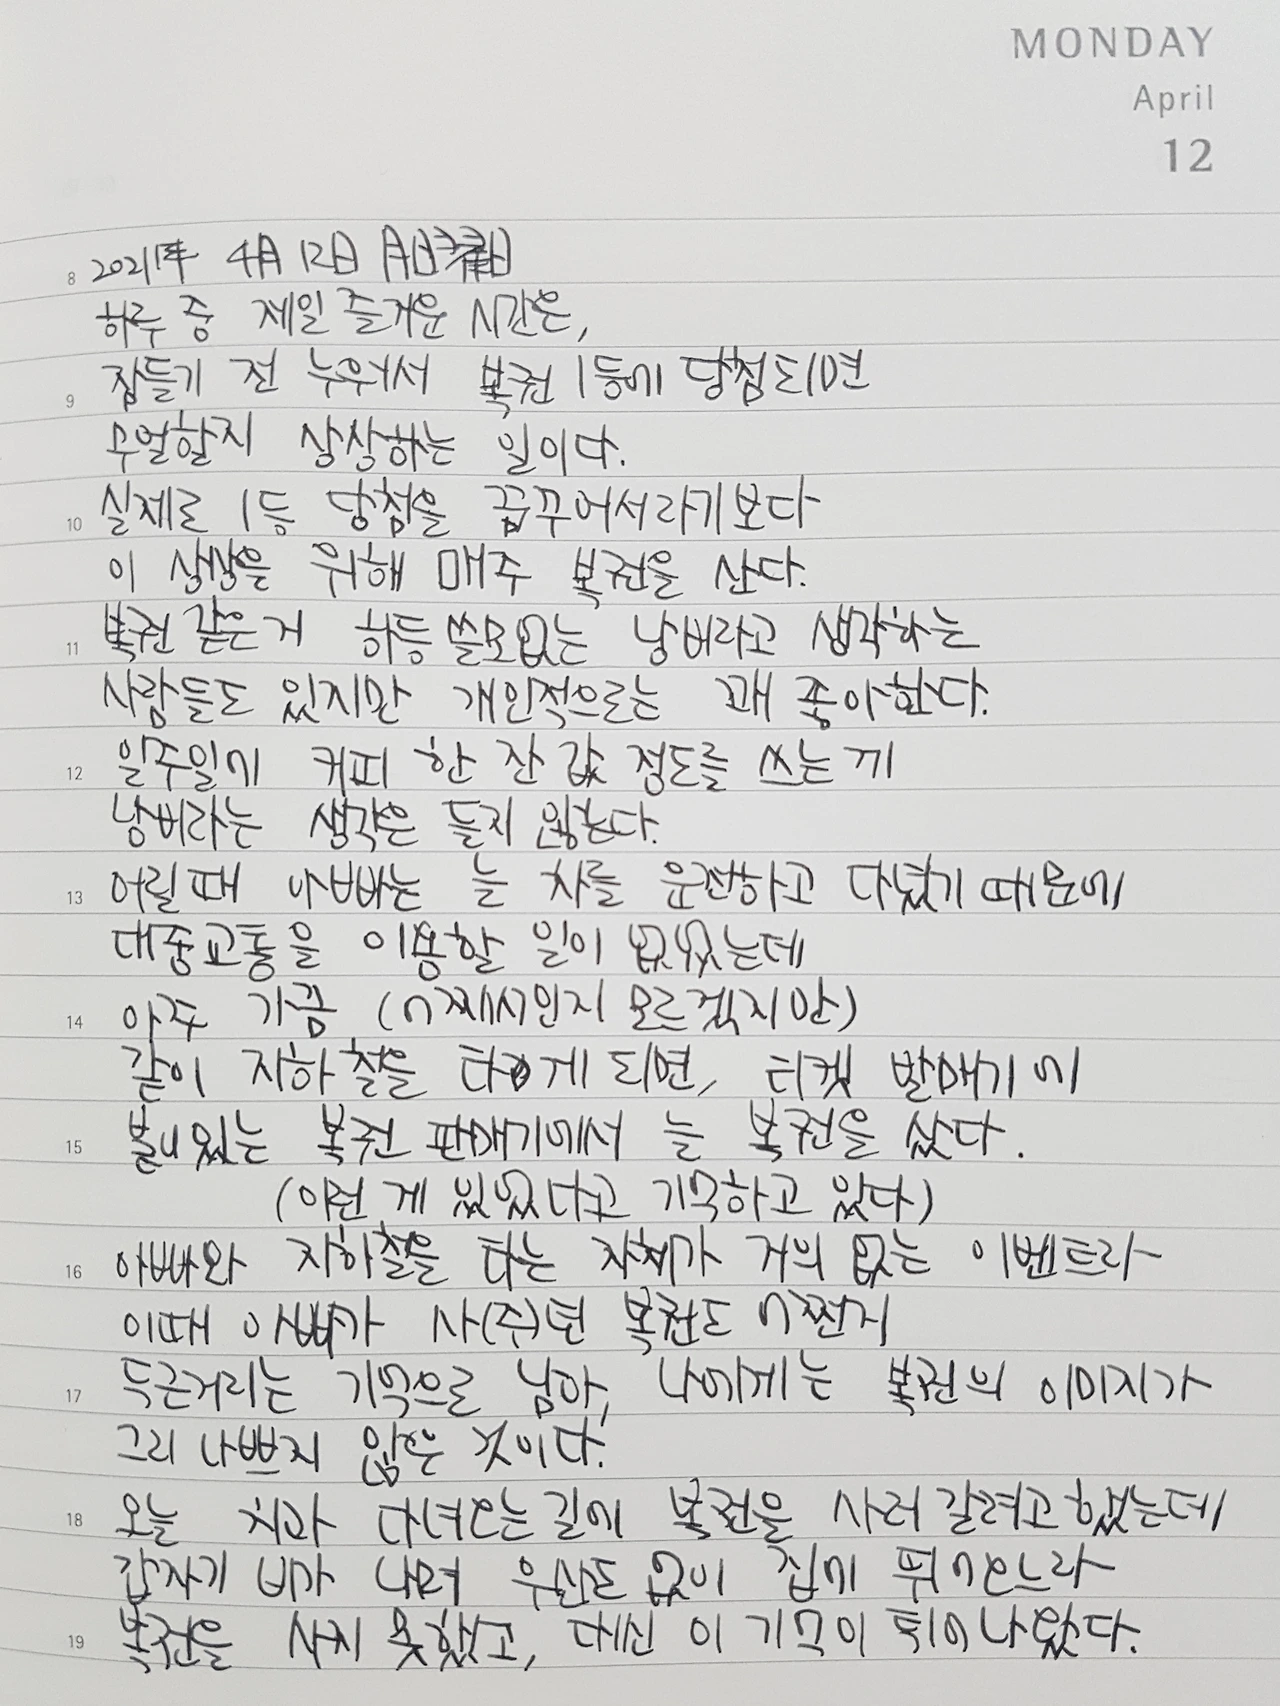 MONDAY
April
12
8 2021年 4月 12日 月曜日
하루 중 제일 즐거운 시간은,
9 잠들기 전 누워서 복권 1등에 당첨되면
무얼할지 상상하는 일이다.
10 실제로 1등 당첨을 꿈꾸어서라기보다
이 상상을 위해 매주 복권을 산다.
11 복권 같은거 하등 쓸모없는 낭비라고 생각하는
사람들도 있지만 개인적으로는 꽤 좋아한다.
12 일주일에 커피 한 잔 값 정도를 쓰는게
낭비라는 생각은 들지 않는다.
13 어릴 때 아빠는 늘 차를 운전하고 다녔기 때문에
대중교통을 이용할 일이 없었는데
14 아주 가끔 (어째서인지 모르겠지만)
같이 지하철을 타게 되면, 티켓 발매기에
15 붙어있는 복권 판매기에서 늘 복권을 샀다.
(이런 게 있었다고 기억하고 있다)
16 아빠와 지하철을 타는 자체가 거의 없는 이벤트라
이때 아빠가 사(주)던 복권도 어쩐지
17 두근거리는 기억으로 남아, 나에게는 복권의 이미지가
그리 나쁘지 않은 것이다.
18 오늘 치과 다녀오는 길에 복권을 사러 갈려고 했는데
갑자기 비가 내려 우산도 없이 집에 뛰어오느라
19 복권을 사지 못했고, 대신 이 기억이 튀어나왔다.